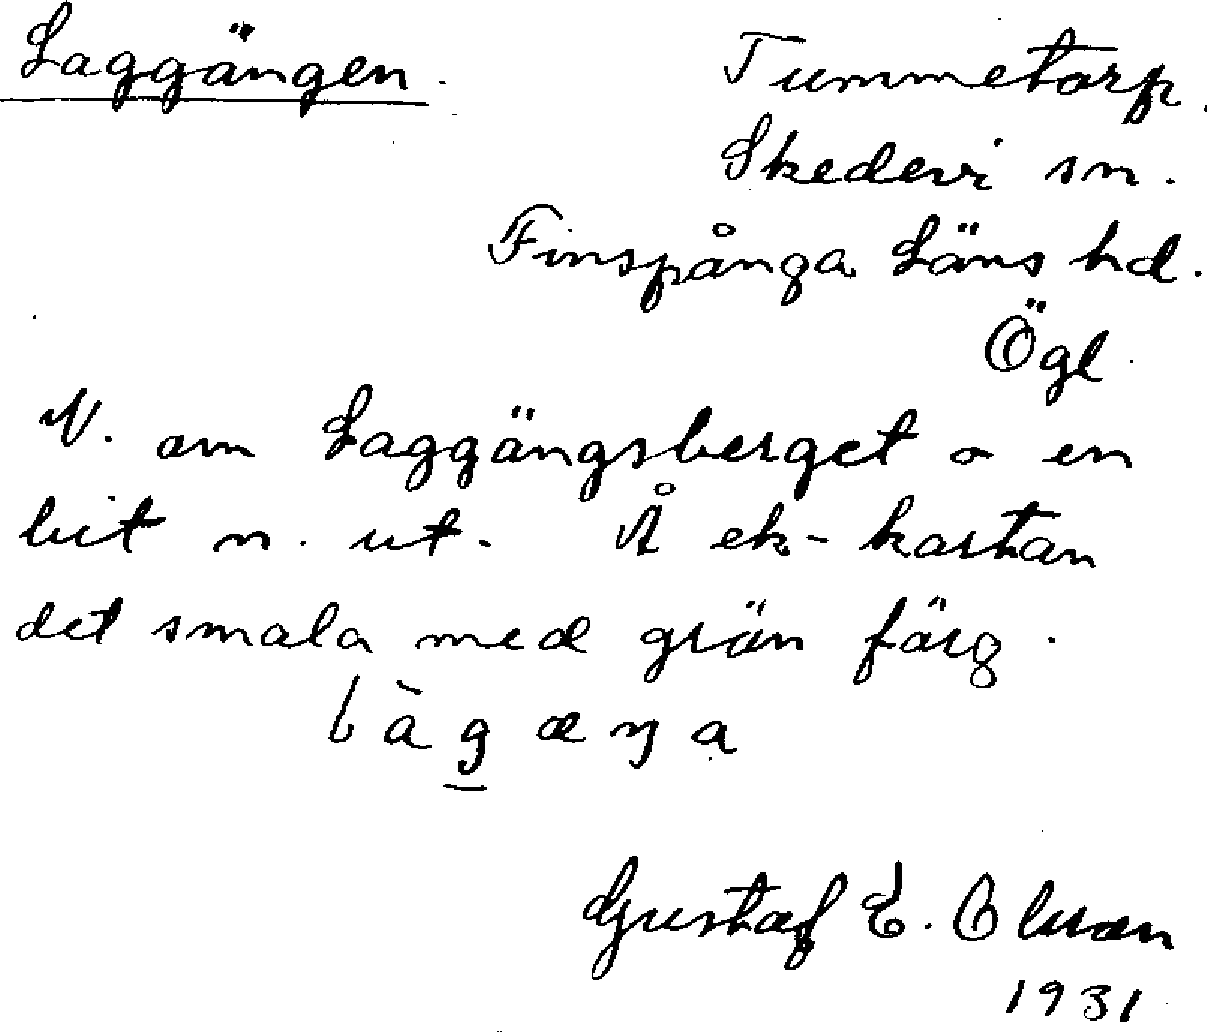 Laggängen.
Tummetorp.
Skedevi sn.
Finspånga Läns hd.
Ögl.
V. om Laggängsberget o en
bit n. ut. Å ek-kartan
det smala med grön färg.
Gustaf E. Olsson
1931